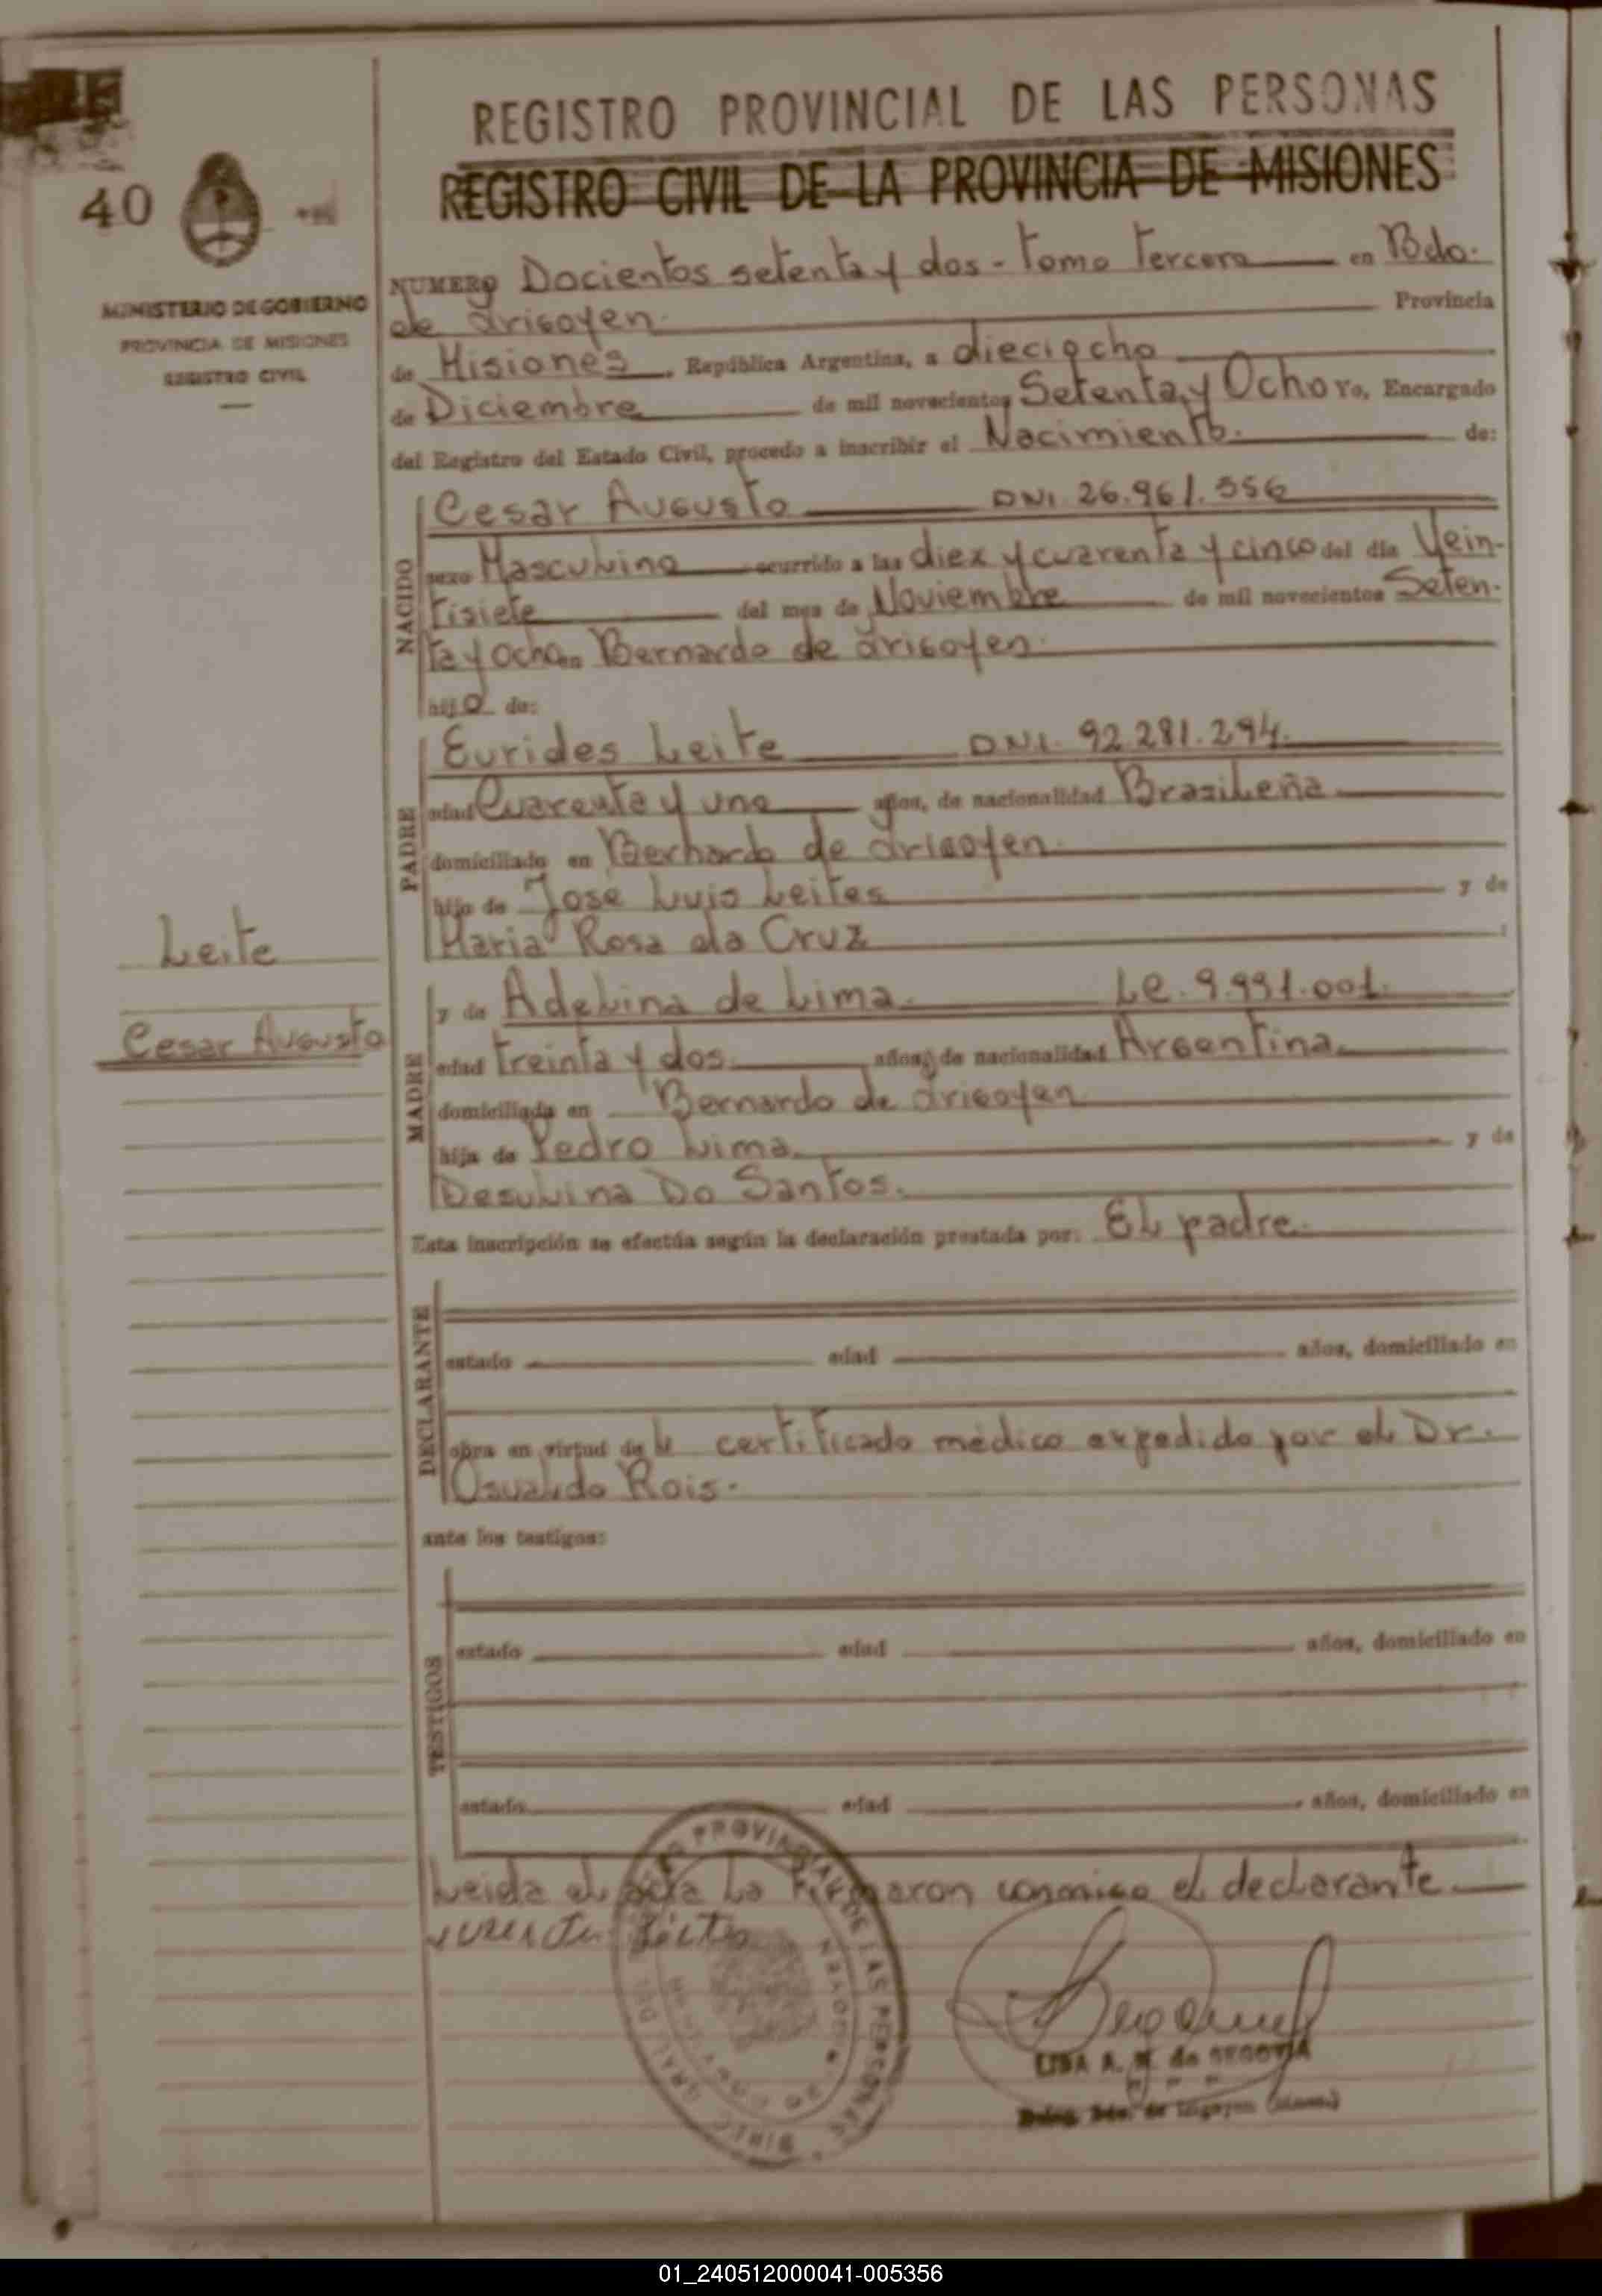 REGISTRO PROVINCIAL DE LAS PERSONAS
REGISTRO CIVIL DE LA PROVINCIA DE MISIONES
40
MINISTERIO DE GOBIERNO
PROVINCIA DE MISIONES
REGISTRO CIVIL
NUMERO Docientos setenta y dos - Tomo Tercero en Bdo.
de Irigoyen. Provincia
de Misiones, República Argentina, a dieciocho
de Diciembre de mil novecientos Setenta y Ocho Yo, Encargado
del Registro del Estado Civil, procedo a inscribir el Nacimiento. de:
NACIDO
Cesar Augusto DNI. 26.961.556
sexo Masculino ocurrido a las diez y cuarenta y cinco del día Vein-
tisiete del mes de Noviembre de mil novecientos Seten-
ta y Ocho en Bernardo de Irigoyen.
hijo de:
PADRE
Eurides Leite D.N.I. 92.281.294.
edad Cuarenta y uno años, de nacionalidad Brazileña
domiciliado en Bernardo de Irigoyen.
hijo de Jose Luis Leites y de
Maria Rosa da Cruz
Leite
Cesar Augusto
MADRE
y de Adelina de Lima. L.C. 9.991.001.
edad treinta y dos. años, de nacionalidad Argentina.
domiciliada en Bernardo de Irigoyen
hija de Pedro Lima. y de
Desulina Do Santos.
Esta inscripción se efectúa según la declaración prestada por: El padre.
DECLARANTE
estado edad años, domiciliado en
obra en virtud de el certificado médico expedido por el Dr.
Osvaldo Rois.
ante los testigos:
TESTIGOS
estado edad años, domiciliado en
estado edad años, domiciliado en
Leida el acta La firmaron conmigo el declarante
PROVINCIAL DE LAS PERSONAS
DIREC. GRAL. DEL
LISA A. M. de SEGOVIA
Deleg. Bdo. de Irigoyen (Mnes.)
01_240512000041-005356